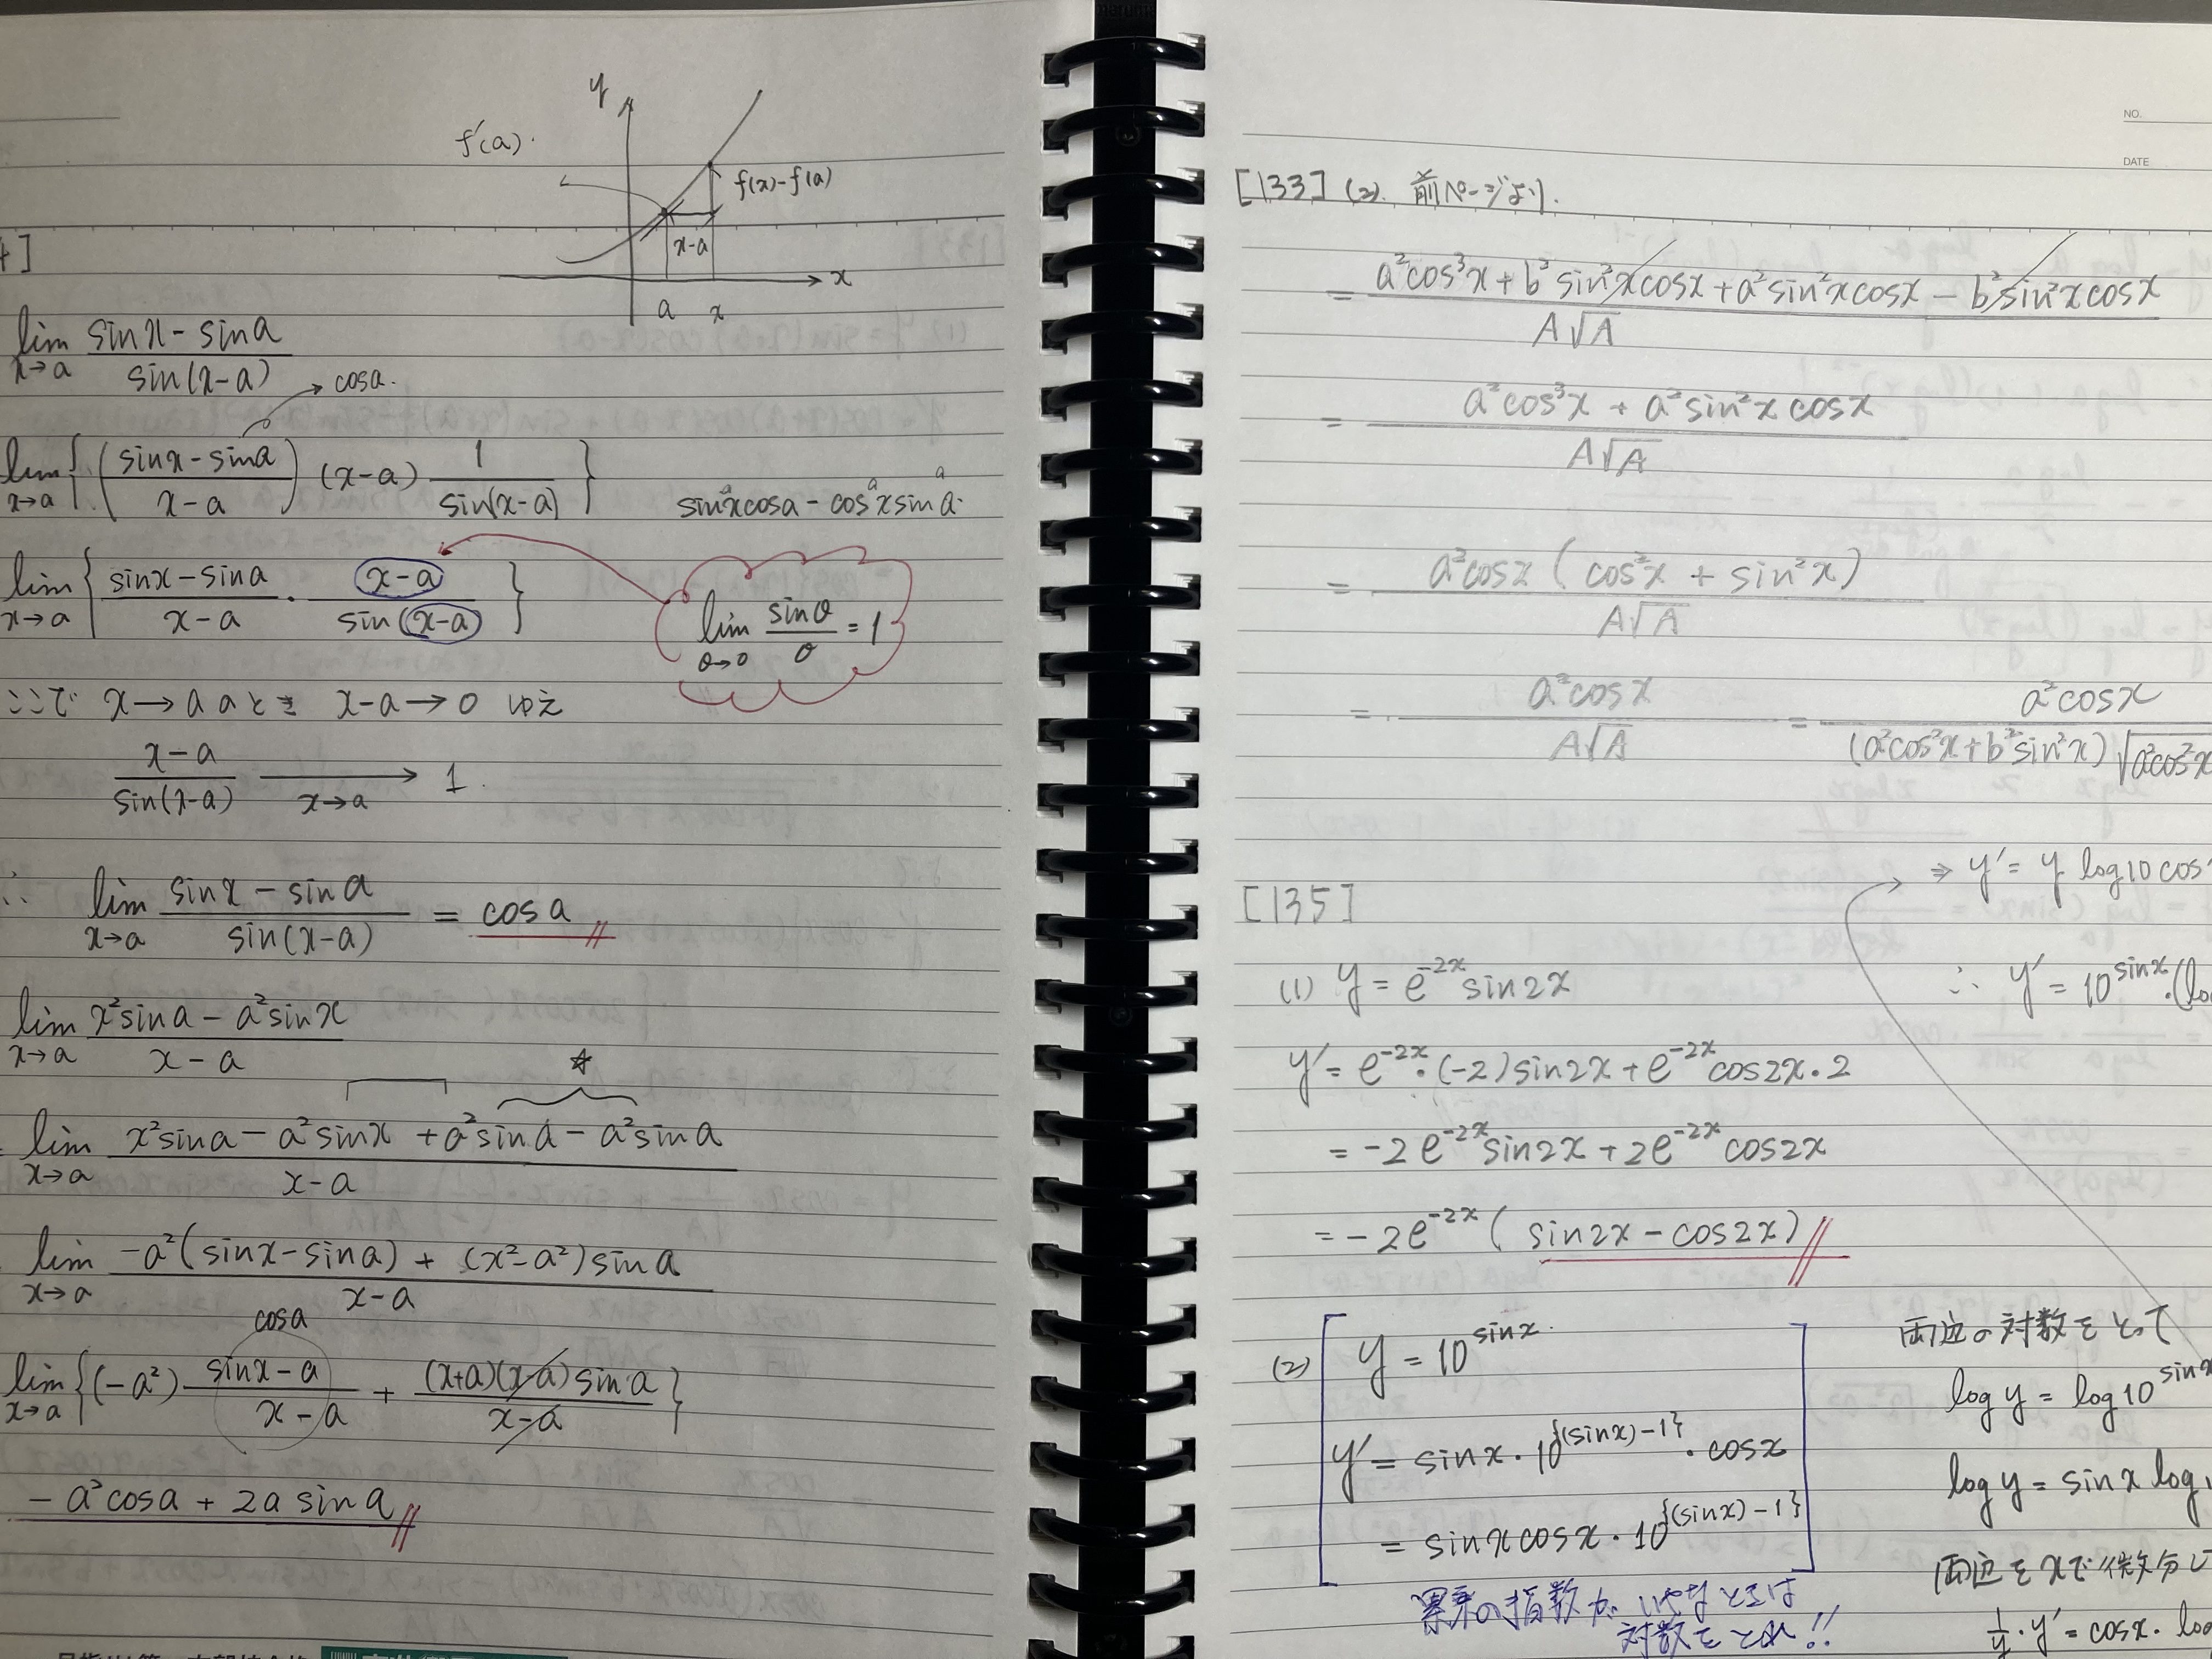 y
f'(a).
f(x)-f(a)
x-a
x
a x
4]
lim x→a (sinx - sina)/(sin(x-a))
→ cosa.
lim x→a { ((sinx-sina)/(x-a)) (x-a) 1/(sin(x-a)) }
sinxcosa - cosxsina.
a a a
lim x→a { (sinx-sina)/(x-a) · (x-a)/(sin(x-a)) }
lim θ→0 sinθ/θ = 1
ここで x→aのとき x-a→0 ゆえ
(x-a)/(sin(x-a)) → x→a 1.
∴ lim x→a (sinx - sina)/(sin(x-a)) = cosa
lim x→a (x²sina - a²sinx)/(x-a)
☆
lim x→a (x²sina - a²sinx + a²sina - a²sina)/(x-a)
lim x→a (-a²(sinx-sina) + (x²-a²)sina)/(x-a)
cosa
lim x→a {(-a²)·(sinx-a)/(x-a) + ((x+a)(x-a)sina)/(x-a)}
- a²cosa + 2a sina
NO.
DATE
[133] (2). 前ページより.
= (a²cos³x + b²sin²xcosx + a²sin²xcosx - b²sin²xcosx)/(A√A)
= (a²cos³x + a²sin²xcosx)/(A√A)
= (a²cosx (cos²x + sin²x))/(A√A)
= (a²cosx)/(A√A) = (a²cosx)/((a²cos²x+b²sin²x)√a²cos²x
[135]
⇒ y' = y log10 cos
(1) y = e^{-2x} sin2x
∴ y' = 10^{sinx}·(lo
y' = e^{-2x}·(-2)sin2x + e^{-2x}cos2x·2
= -2e^{-2x}sin2x + 2e^{-2x}cos2x
= -2e^{-2x}(sin2x - cos2x)
(2) y = 10^{sinx}.
y' = sinx·10^{{(sinx)-1}}·cosx
= sinxcosx·10^{{(sinx)-1}}
累乗の指数がいやなときは
対数をとれ!!
両辺の対数をとって
log y = log10^{sinx
log y = sinx log
両辺をxで微分して
1/y·y' = cosx·log